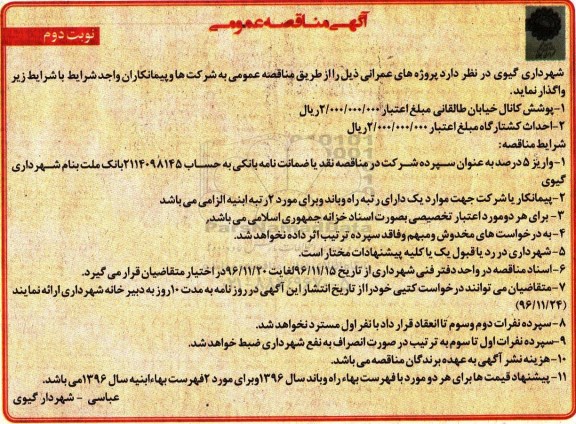 آگهی مناقصه عمومی
نوبت دوم
شهرداری گیوی در نظر دارد پروژه های عمرانی ذیل را از طریق مناقصه عمومی به شرکت ها و پیمانکاران واجد شرایط با شرایط زیر
واگذار نماید.
۱-پوشش کانال خیابان طالقانی مبلغ اعتبار ۲/۰۰۰/۰۰۰/۰۰۰ریال
۲-احداث کشتارگاه مبلغ اعتبار ۲/۰۰۰/۰۰۰/۰۰۰ریال
شرایط مناقصه:
۱-واریز ۵درصد به عنوان سپرده شرکت در مناقصه نقد یا ضمانت نامه بانکی به حساب ۲۱۱۴۰۹۸۱۴۵بانک ملت بنام شهرداری
گیوی
۲-پیمانکار یا شرکت جهت موارد یک دارای رتبه راه وباند وبرای مورد ۲رتبه ابنیه الزامی می باشد
۳- برای هر دومورد اعتبار تخصیصی بصورت اسناد خزانه جمهوری اسلامی می باشد,
۴-به درخواست های مخدوش ومبهم وفاقد سپرده ترتیب اثر داده نخواهد شد.
۵-شهرداری در رد یا قبول یک یا کلیه پیشنهادات مختار است.
۶-اسناد مناقصه در واحد دفتر فنی شهرداری از تاریخ ۹۶/۱۱/۱۵لغایت ۹۶/۱۱/۲۰در اختیار متقاضیان قرار می گیرد.
۷-متقاضیان می توانند درخواست کتبی خود را از تاریخ انتشار این آگهی در روزنامه به مدت ۱۰روز به دبیر خانه شهرداری ارائه نمایند
(۹۶/۱۱/۲۴)
۸-سپرده نفرات دوم وسوم تا انعقاد قرار داد با نفر اول مسترد نخواهد شد.
۹-سپرده نفرات اول تا سوم به ترتیب در صورت انصراف به نفع شهرداری ضبط خواهد شد.
۱۰-هزینه نشر آگهی به عهده برندگان مناقصه می باشد.
۱۱-پیشنهاد قیمت ها برای هر دو مورد با فهرست بهاء راه وباند سال ۱۳۹۶وبرای مورد ۲فهرست بهاءابنیه سال ۱۳۹۶می باشد.
عباسی - شهردار گیوی